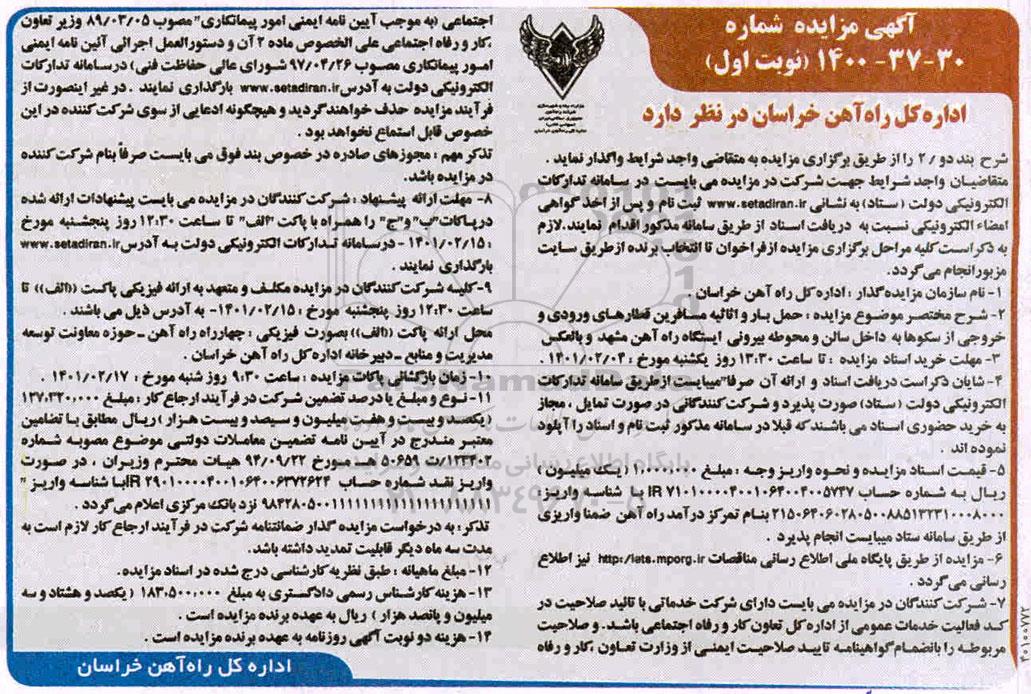 آگهی مزایده شماره
۳۰-۳۷-۱۴۰۰ (نوبت اول)
اداره کل راه آهن خراسان در نظر دارد
شرح بند دو / ۲ را از طریق برگزاری مزایده به متقاضی واجد شرایط واگذار نماید .
متقاضیان واجد شرایط جهت شرکت در مزایده می بایست در سامانه تدارکات
الکترونیکی دولت ( ستاد) به نشانی www.setadiran.ir ثبت نام و پس از اخذ گواهی
امضاء الکترونیکی نسبت به دریافت اسناد از طریق سامانه مذکور اقدام نمایند.لازم
به ذکر است کلیه مراحل برگزاری مزایده از فراخوان تا انتخاب برنده از طریق سایت
مزبور انجام می گردد.
۱- نام سازمان مزایده گذار : اداره کل راه آهن خراسان
۲- شرح مختصر موضوع مزایده : حمل بار و اثاثیه مسافرین قطارهای ورودی و
خروجی از سکوها به داخل سالن و محوطه بیرونی ایستگاه راه آهن مشهد و بالعکس
۳- مهلت خرید اسناد مزایده : تا ساعت ۱۳:۳۰ روز یکشنبه مورخ : ۱۴۰۱/۰۲/۰۴ .
۴- شایان ذکر است دریافت اسناد و ارائه آن صرفا" میبایست از طریق سامانه تدارکات
الکترونیکی دولت (ستاد) صورت پذیرد و شرکت کنندگانی در صورت تمایل ، مجاز
به خرید حضوری اسناد می باشند که قبلا در سامانه مذکور ثبت نام و اسناد را آپلود
نموده اند .
۵- قیمت اسناد مزایده و نحوه واریز وجه : مبلغ ۱.۰۰۰.۰۰۰ ( یک میلیون )
ریال به شماره حساب IR ۷۱۰۱۰۰۰۰۴۰۰۱۰۶۴۰۰۴۰۰۵۷۴۷ با شناسه واریز:
۲۱۵۰۶۴۰۶۰۲۸۰۵۰۰۸۸۵۱۳۲۳۱۰۰۰۸۰۰۰ بنام تمرکز درآمد راه آهن ضمنا واریزی
از طریق سامانه ستاد میبایست انجام پذیرد .
۶- مزایده از طریق پایگاه ملی اطلاع رسانی مناقصات http:/iets.mporg.ir نیز اطلاع
رسانی می گردد .
۷- شرکت کنندگان در مزایده می بایست دارای شرکت خدماتی با تائید صلاحیت در
کد فعالیت خدمات عمومی از اداره کل تعاون کار و رفاه اجتماعی باشد. و صلاحیت
مربوطه را بانضمام گواهینامه تایید صلاحیت ایمنی از وزارت تعاون ، کار و رفاه
اجتماعی (به موجب آیین نامه ایمنی امور پیمانکاری" مصوب ۸۹/۰۳/۰۵ وزیر تعاون
،کار و رفاه اجتماعی علی الخصوص ماده ۲ آن و دستورالعمل اجرائی آئین نامه ایمنی
امور پیمانکاری مصوب ۹۷/۰۴/۲۶ شورای عالی حفاظت فنی) در سامانه تدارکات
الکترونیکی دولت به آدرس www.setadiran.ir بارگذاری نمایند . در غیر اینصورت از
فرآیند مزایده حذف خواهند گردید و هیچگونه ادعایی از سوی شرکت کننده در این
خصوص قابل استماع نخواهد بود .
تذکر مهم : مجوزهای صادره در خصوص بند فوق می بایست صرفاً بنام شرکت کننده
در مزایده باشد.
۸- مهلت ارائه پیشنهاد : شرکت کنندگان در مزایده می بایست پیشنهادات ارائه شده
در پاکات "ب" و "ج" را همراه با پاکت "الف" تا ساعت ۱۲:۳۰ روز پنجشنبه مورخ
: ۱۴۰۱/۰۲/۱۵ - در سامانه تدارکات الکترونیکی دولت به آدرس www.setadiran.ir
بارگذاری نمایند .
۹-کلیه شرکت کنندگان در مزایده مکلف و متعهد به ارائه فیزیکی پاکت ((الف)) تا
ساعت ۱۲:۳۰ روز پنجشنبه مورخ : ۱۴۰۱/۰۲/۱۵- به آدرس ذیل می باشند .
محل ارائه پاکت ((الف)) بصورت فیزیکی : چهارراه راه آهن -حوزه معاونت توسعه
مدیریت و منابع -دبیرخانه اداره کل راه آهن خراسان .
۱۰- زمان بازگشائی پاکات مزایده : ساعت ۹:۳۰ روز شنبه مورخ : ۱۴۰۱/۰۲/۱۷ .
۱۱- نوع و مبلغ یا درصد تضمین شرکت در فرآیند ارجاع کار : مبلغ ۱۲۷.۳۲۰.۰۰۰
(یکصد و بیست و هفت میلیون و سیصد و بیست هزار ) ریال مطابق با تضامین
معتبر مندرج در آیین نامه تضمین معاملات دولتی موضوع مصوبه شماره
۱۲۳۴۰۲/ت ۵۰۶۵۹ هـ مورخ ۹۴/۰۹/۲۲ هیات محترم وزیران ، در صورت
واریز نقد شماره حساب IR ۲۹۰۱۰۰۰۰۴۰۰۱۰۶۴۰۰۶۳۷۲۶۲۴ با شناسه واریز "
۹۸۴۲۸۰۵۰۰۱۱۱۱۱۱۱۱۱۱۱۱۱۱۱۱۱۱۱ نزد بانک مرکزی اعلام می گردد .
تذکر: به درخواست مزایده گذار ضمانتنامه شرکت در فرآیند ارجاع کار لازم است به
مدت سه ماه دیگر قابلیت تمدید داشته باشد.
۱۲- مبلغ ماهیانه : طبق نظریه کارشناسی درج شده در اسناد مزایده.
۱۳- هزینه کارشناس رسمی دادگستری به مبلغ ۱۸۳.۵۰۰.۰۰۰ ( یکصد و هشتاد و سه
میلیون و پانصد هزار ) ریال به عهده برنده مزایده است .
۱۴- هزینه دو نوبت آگهی روزنامه به عهده برنده مزایده است .
اداره کل راه آهن خراسان
۴۰۱۰۰۷۷۲